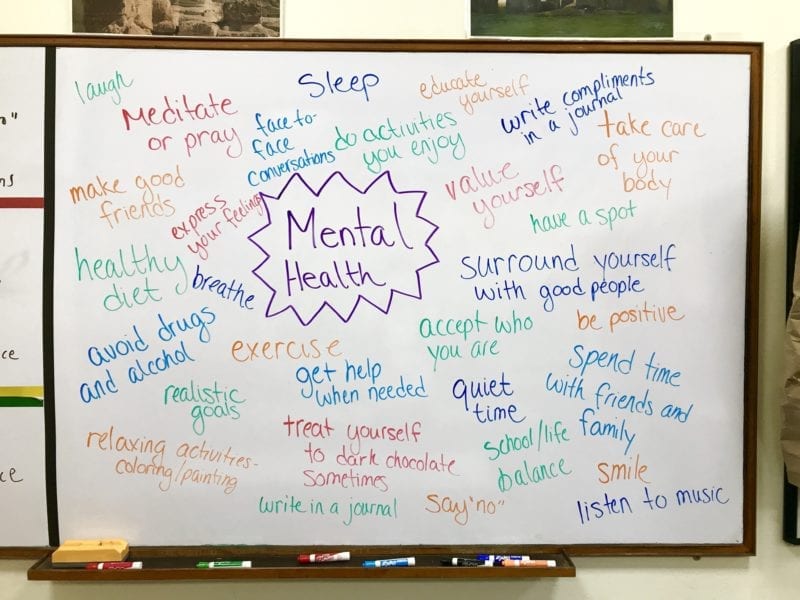 laugh
Sleep
educate
yourself
write compliments
in a journal
Meditate
or pray
face to-
face
conversations
do activities
you enjoy
take care
of your
body
make good
friends
express
your feelings
value
yourself
have a spot
Mental
Health
healthy
diet
breathe
surround yourself
with good people
avoid drugs
and alcohol
exercise
accept who
you are
be positive
realistic
goals
get help
when needed
quiet
time
Spend time
with friends and
family
relaxing activities-
coloring/painting
treat yourself
to dark chocolate
sometimes
school/life
balance
smile
write in a journal
say "no"
listen to music